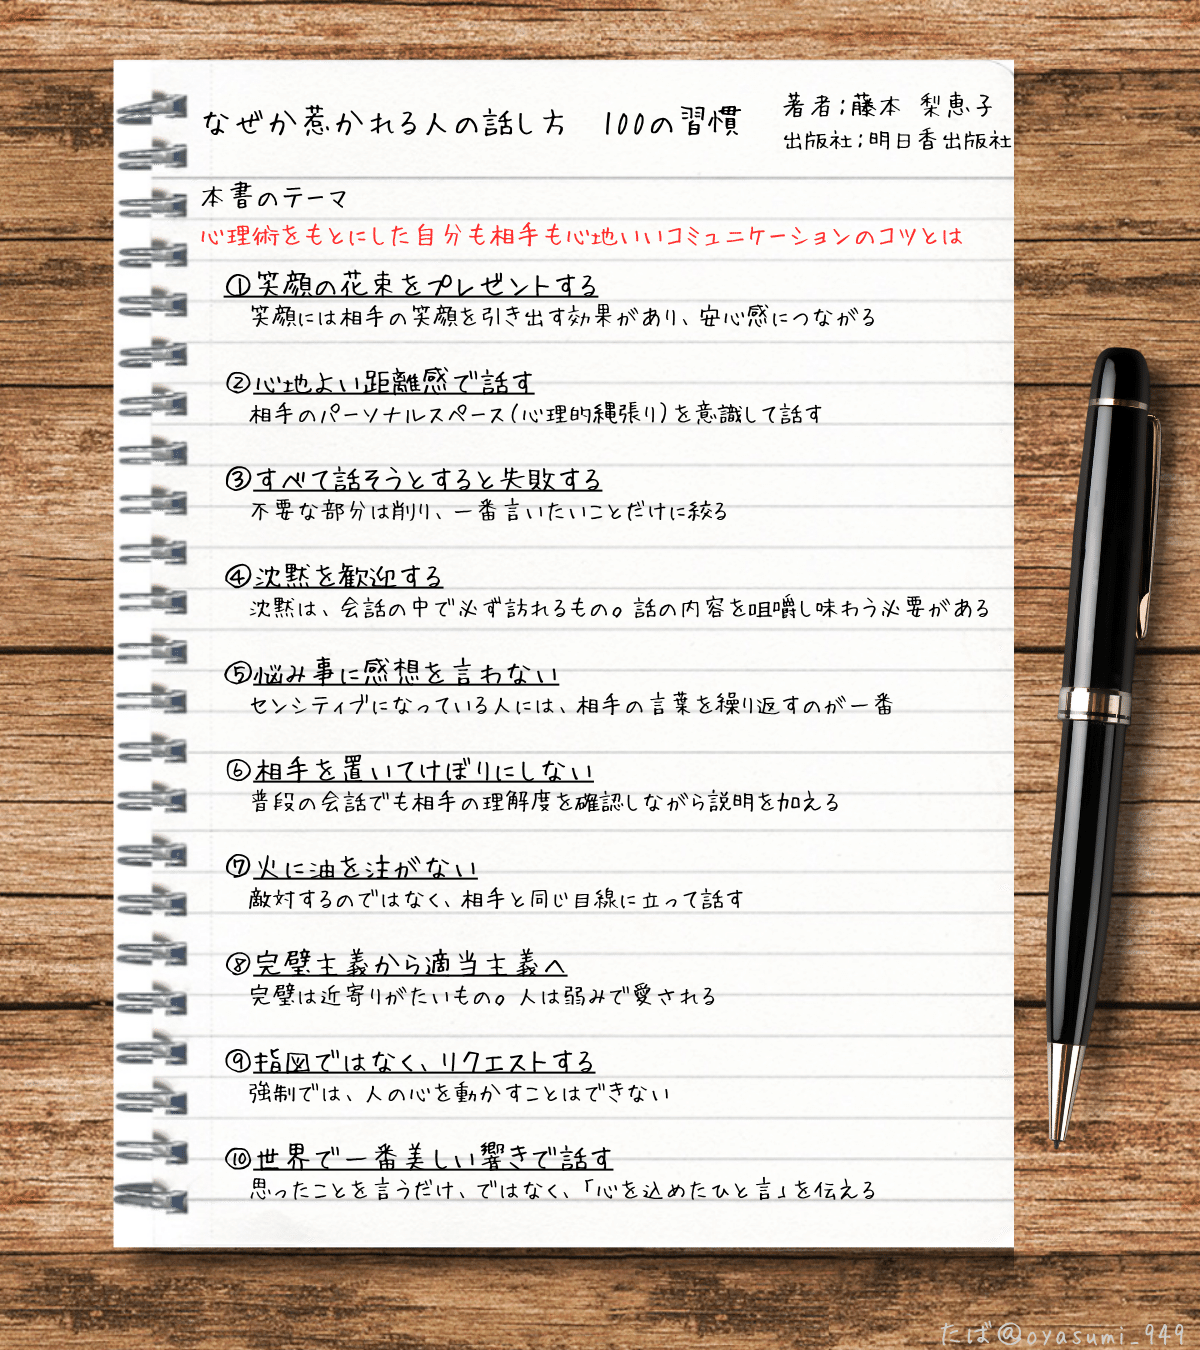 なぜか惹かれる人の話し方 100の習慣
著者；藤本 梨恵子
出版社；明日香出版社
本書のテーマ
心理術をもとにした自分も相手も心地いいコミュニケーションのコツとは
①笑顔の花束をプレゼントする
笑顔には相手の笑顔を引き出す効果があり、安心感につながる
②心地よい距離感で話す
相手のパーソナルスペース(心理的縄張り)を意識して話す
③すべて話そうとすると失敗する
不要な部分は削り、一番言いたいことだけに絞る
④沈黙を歓迎する
沈黙は、会話の中で必ず訪れるもの。話の内容を咀嚼し味わう必要がある
⑤悩み事に感想を言わない
センシティブになっている人には、相手の言葉を繰り返すのが一番
⑥相手を置いてけぼりにしない
普段の会話でも相手の理解度を確認しながら説明を加える
⑦火に油を注がない
敵対するのではなく、相手と同じ目線に立って話す
⑧完璧主義から適当主義へ
完璧は近寄りがたいもの。人は弱みで愛される
⑨指図ではなく、リクエストする
強制では、人の心を動かすことはできない
⑩世界で一番美しい響きで話す
思ったことを言うだけ、ではなく、「心を込めたひと言」を伝える
たば@oyasumi_949